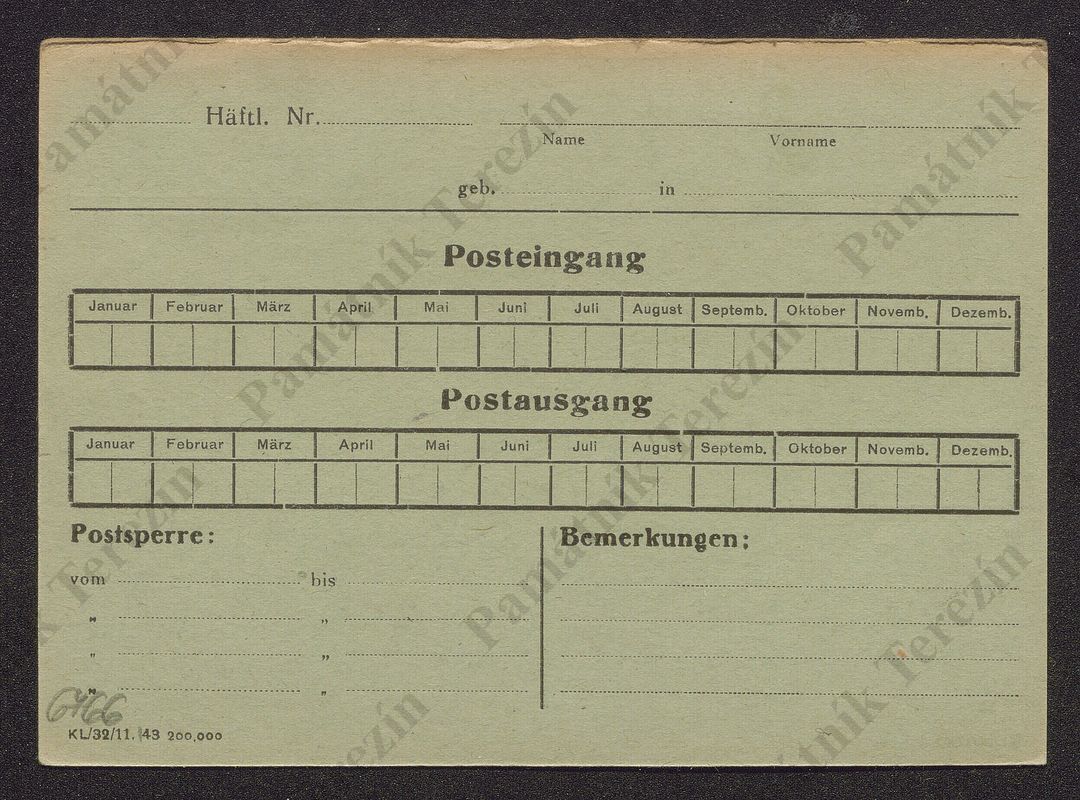 Häftl. Nr.
Name Vorname
geb. in
Posteingang
Januar Februar März April Mai Juni Juli August Septemb. Oktober Novemb. Dezemb.
Postausgang
Januar Februar März April Mai Juni Juli August Septemb. Oktober Novemb. Dezemb.
Postsperre: Bemerkungen:
vom bis
„ „
„ „
„ „
6766
KL/32/11. 43 200.000
Památník Terezín
Památník Terezín
Památník Terezín
Památník Terezín